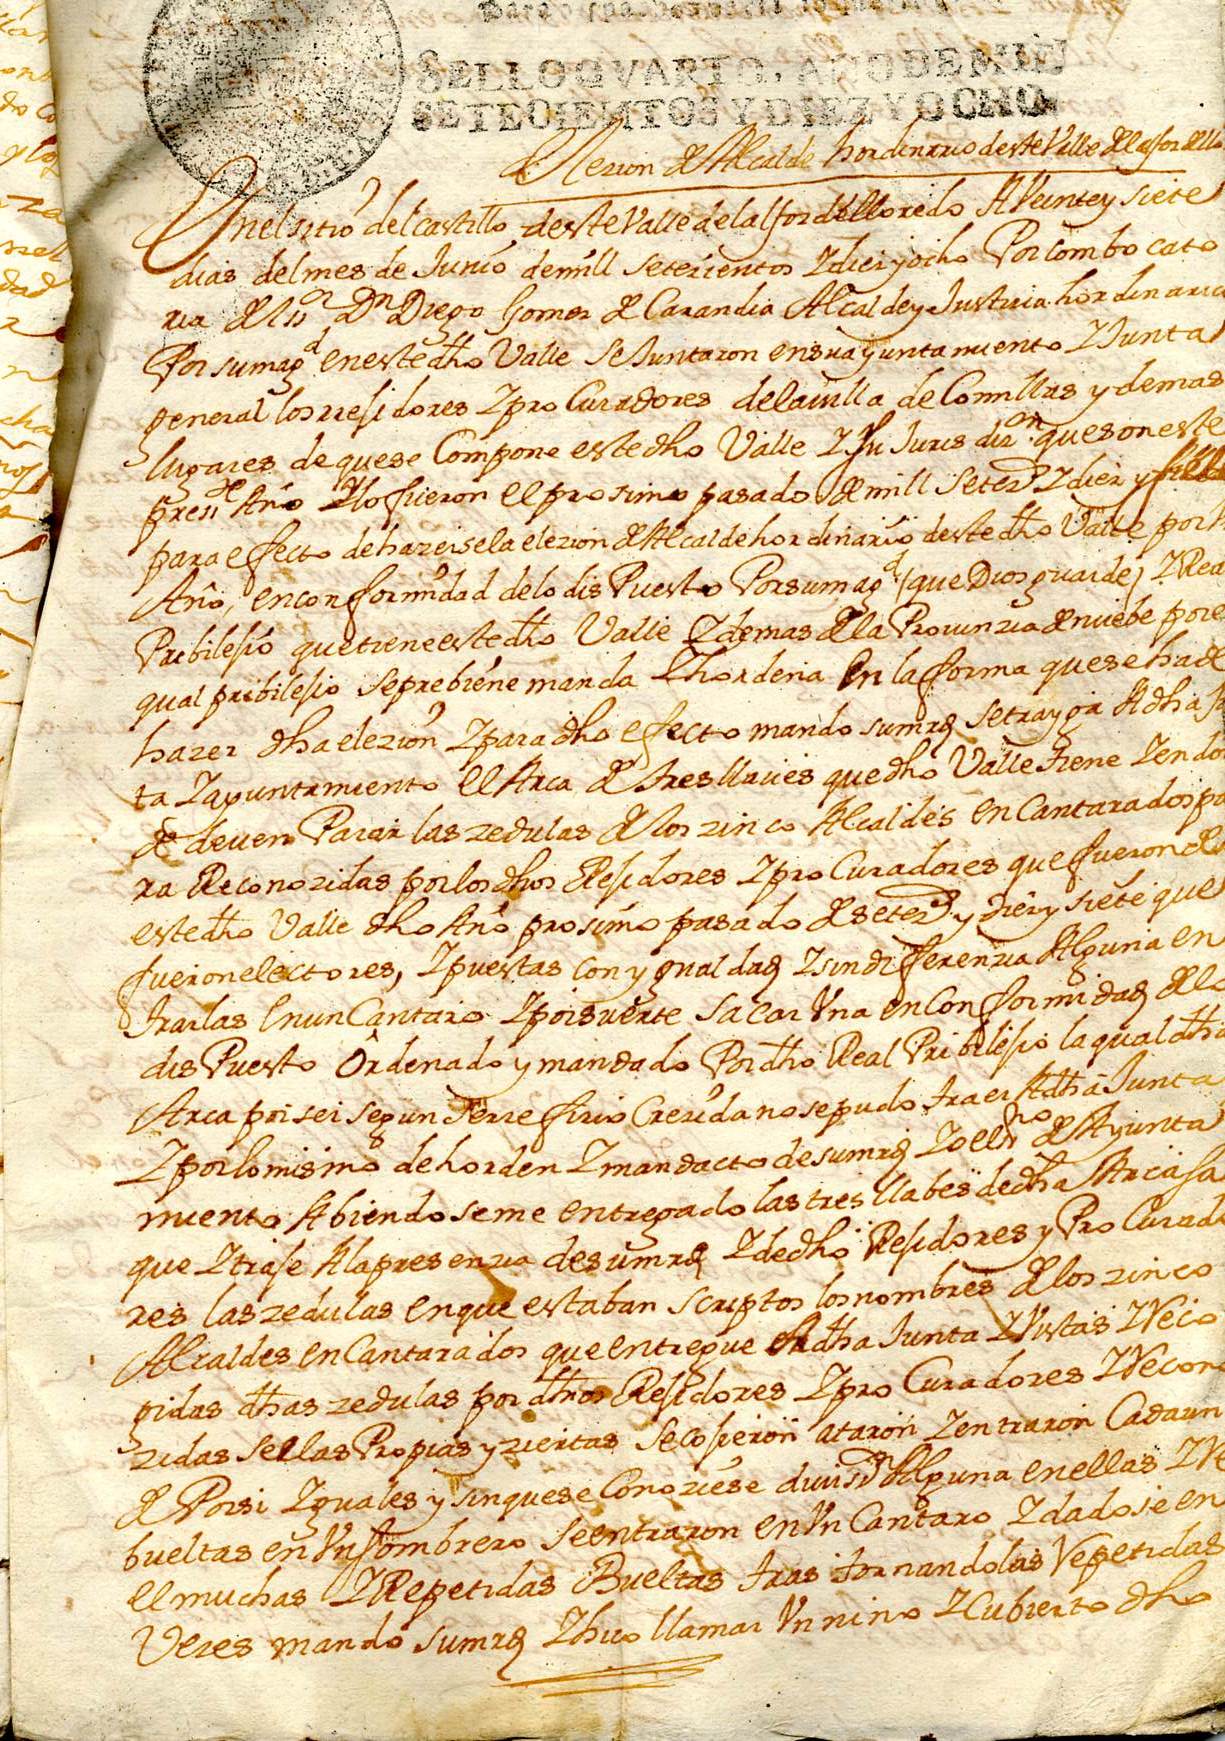 SELLO QVARTO, AÑO DE MIL
SETECIENTOS Y DIEZ Y OCHO.
Elezion de Alcalde hordinario deste Valle de alfoz de llo
En el sitio del castillo deste Valle del alfoz de lloredo A Veinte y siete
dias del mes de Junio de mill setezientos Z diez y ocho Por combocato
ria del sr Dn Diego Gomez de Carandia Alcalde y Justizia hordinaria
Por su magd en este dho Valle se Juntaron en su ayuntamiento Z Junta
general los rrejidores Z proCuradores de la villa de Comillas y demas
lugares de que se Compone este dho Valle Z su Juris dizon que son este
preste Año Z lo fueron el prosimo pasado de mill setezs Z diez y siete
para efecto de hazerse la elezion de Alcalde hordinario deste dho Valle por
Año, en conformidad de lo disPuesto Por su magd (que Dios guarde) Z Rea
Pribilejio que tiene este dho Valle Z demas de la Provinzia de nuebe por e
qual pribilejio se prebiene manda Z hordena En la forma que se ha de
hazer dha elezion Z para dho efecto mando su mrd se trayga A dha Ju
ta Z ayuntamiento el Arca de tres llaves que dho Valle tiene Z en don
de deven Parar las zedulas de los zinco Alcaldes enCantarados pa
ra Reconozidas por los dhos Rejidores Z proCuradores que fueron de
este dho Valle dho Año prosimo pasado de setezs y diez y siete que
fueron electores, Z puestas con ygualdad Z sin diferenzia Alguna en
trarlas En un Cantaro Z por suerte sacar Una en Conformidad de lo
disPuesto Ordenado y mandado Por dho Real Pribilejio la qual dha
Arca por ser segun se rrefirio Crezida no se pudo traer A dha Junta
Z por lo mismo de horden Z mandacto de su mrd Yo el esno de Ayunta
miento Abiendoseme entregado las tres llabes de dha Arca sa
que Z traje A la presenzia de su mrd Z de dhos Rejidores y ProCurado
res las zedulas en que estaban scriptos los nombres de los zinco
Alcaldes enCantarados que entregue A dha Junta Z Vistas Z Reco
gidas dhas zedulas por dhos Rejidores Z proCuradores Z Recono
zidas ser las Propias y ziertas se cojieron ataron Z entraron Cada un
de Por si Z guales y sin que se Conoziese divison Alguna en ellas Z Re
bueltas en Un sombrero se entraron en Un Cantaro Z dadose en
el muchas Z Repetidas Bueltas trastornandolas Repetidas
Vezes mando su mrd Z hizo llamar Un nino Z Cubierto dho